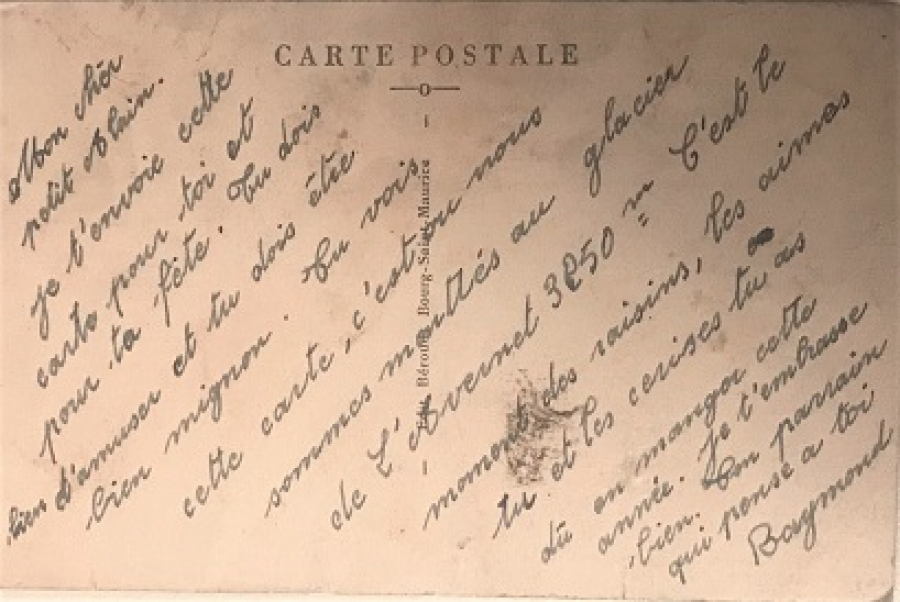 CARTE POSTALE
Mon chér
petit Alain.
je t'envoie cette
carte pour toi et
pour ta fête. Tu dois
bien d'amuser et tu dois être
bien mignon. Tu vois
cette carte, c'est ou nous
sommes montés au glacier
de L'Avernet 3250 m C'est le
moment des raisins, les aimes
tu et les cerises tu as
dû en manger cette
année. Je t'embrasse
bien. Ton parrain
qui pense a toi
Raymond
Bourg-Saint-Maurice